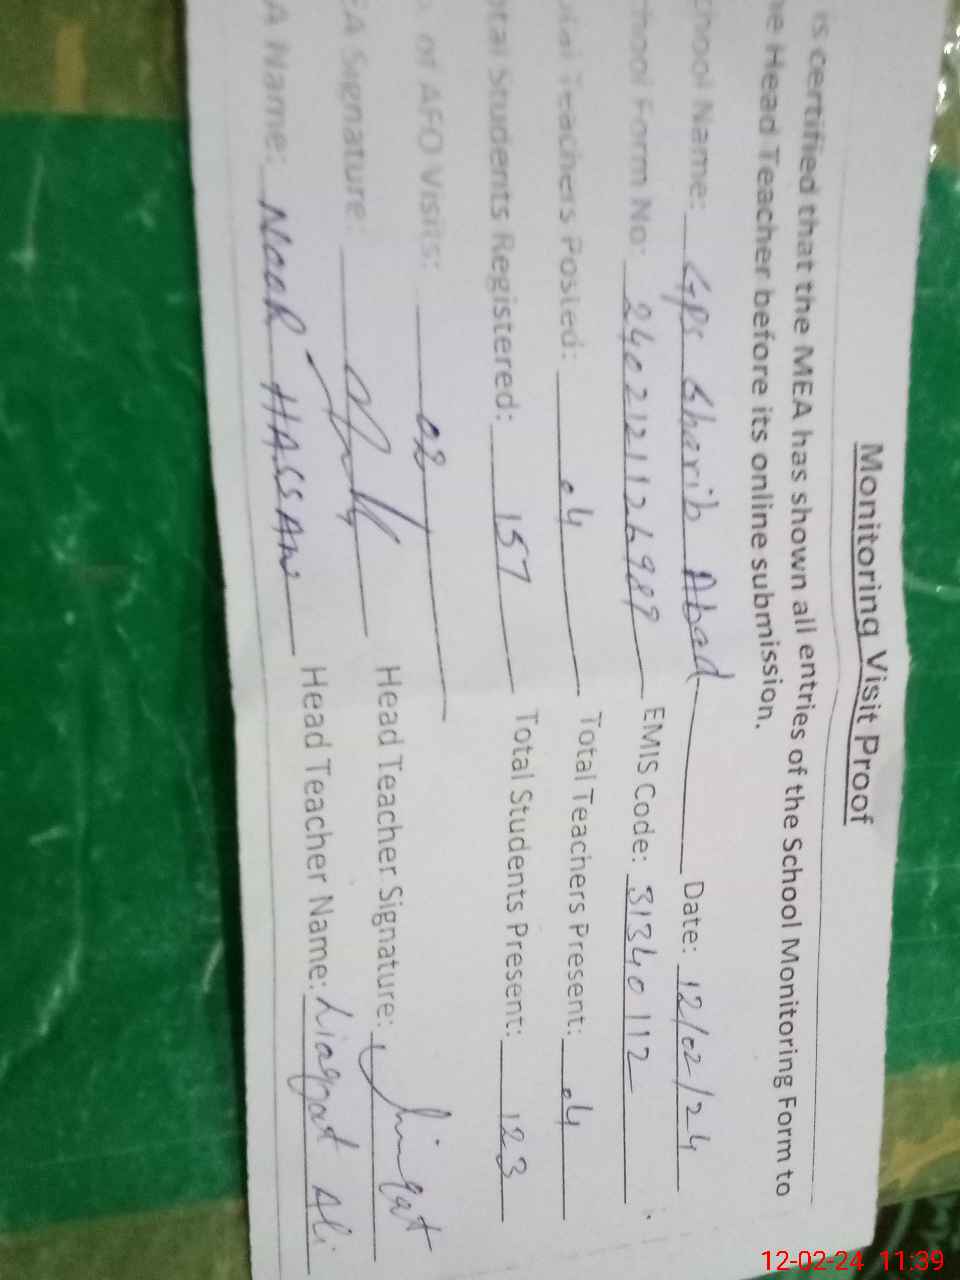 Monitoring Visit Proof
is certified that the MEA has shown all entries of the School Monitoring Form to
he Head Teacher before its online submission.
chool Name: GPS Gharib Abad Date: 12/02/24
chool Form No: EMIS Code: 31340112
Teachers Posted: 04 Total Teachers Present: 04
otal Students Registered: 157 Total Students Present: 123
. of AFO Visits: 02
EA Signature: Head Teacher Signature: Liaqat
A Name: NOOR HASSAN Head Teacher Name: Liaqat Ali
12-02-24 11:39